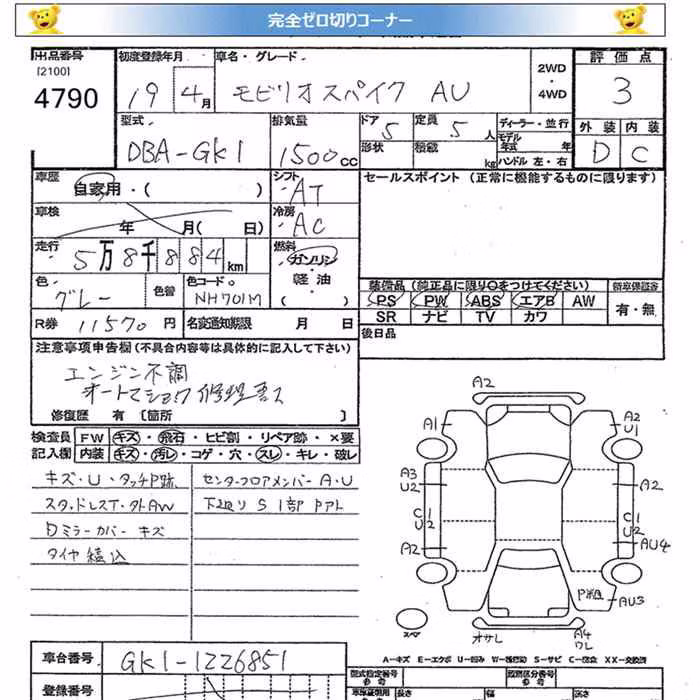 完全ゼロ切りコーナー
出品番号 初度登録年月 車名・グレード 評価点
[2100]
4790 19 4月 モビリオスパイク AU 2WD・4WD 3
型式 排気量 ドア 定員 ディーラー・並行 外装 内装
DBA-GK1 1500cc 5 5人 モデル年式 年 D C
形状 積載 kg ハンドル 左・右
車歴 自家用・( ) シフト AT セールスポイント (正常に機能するものに限ります)
車検 年 月( 日) 冷房 AC
走行 5万8千884km 燃料 ガソリン
軽油
( )
色 グレー 色替 色コード NH701M
装備品 (純正品に限り○をつけてください) 新車保証書
PS PW ABS エアB AW 有・無
SR ナビ TV カワ
R券 11570円 名変通知期限 月 日 後日品
注意事項申告欄 (不具合内容等は具体的に記入して下さい)
エンジン不調
オートマショック 修理要ス
修復歴 有 [箇所 ]
検査員 FW キズ・飛石・ヒビ割・リペア跡・×要
記入欄 内装 キズ・汚レ・コゲ・穴・スレ・キレ・破レ
キズ・U・タッチP跡 センターフロアメンバー A・U
スタッドレスT・外AW 下廻り S 1部 Pアト
Dミラーカバー キズ
タイヤ積込
A2
A1 A2
U1
A3
U2 A2
C1
U2 C1
U2
A2 AU4
P粗 AU3
スペア オサレ A4
ワレ
A-キズ E-エクボ U-凹み W-補修跡 S-サビ C-腐食 XX-交換済
車台番号 GK1-1226851 型式指定番号 参考 類別区分番号 参考
登録番号 長さ 幅 高さ